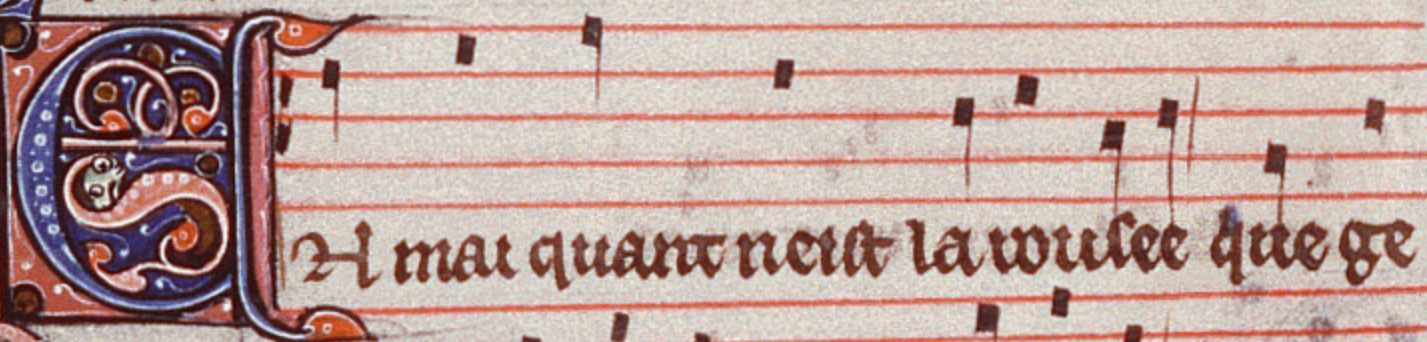 EN mai quant neist la rousee que ge